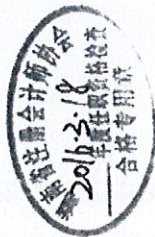 南省注册会计师协会
2016.3.18
年度任职资格检查
合格专用章